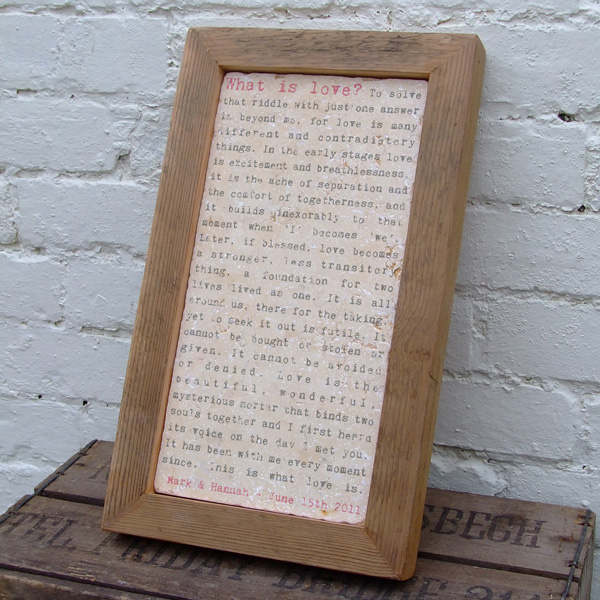 What is love? To solve
that riddle with just one answer
is beyond me, for love is many
different and contradictory
things. In the early stages love
is excitement and breathlessness,
it is the ache of separation and
the comfort of togetherness, and
it builds inexorably to that
moment when 'I' becomes 'we'.
Later, if blessed, love becomes
a stronger, less transitory
thing, a foundation for two
lives lived as one. It is all
around us, there for the taking,
yet to seek it out is futile. It
cannot be bought or stolen or
given. It cannot be avoided
or denied. Love is the
beautiful, wonderful,
mysterious mortar that binds two
souls together and I first heard
its voice on the day I met you.
It has been with me every moment
since. This is what love is.
Mark & Hannah - June 15th 2011
SBECH
TEL. FRIDAY BRIDGE